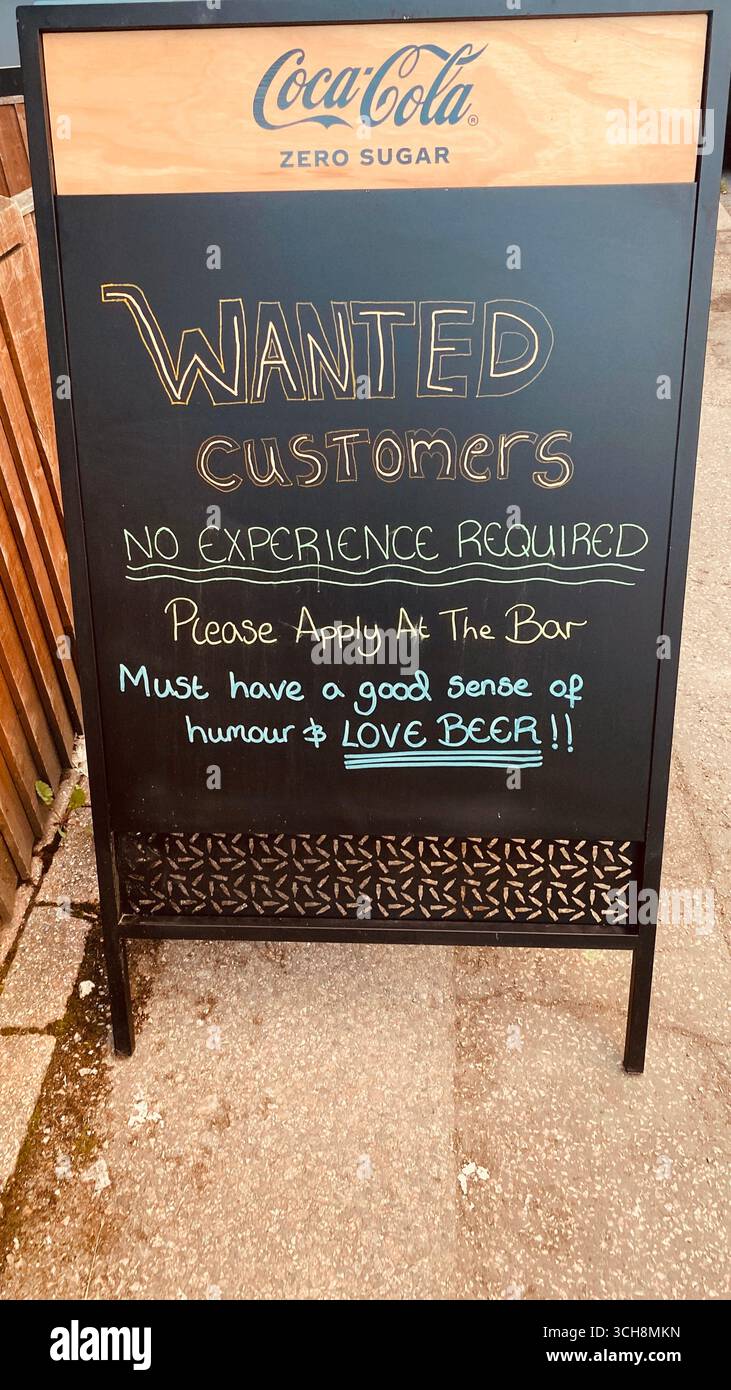 Coca-Cola®
ZERO SUGAR
WANTED
CUSTOMERS
NO EXPERIENCE REQUIRED
Please Apply At The Bar
Must have a good sense of
humour & LOVE BEER!!
alamy
Image ID: 3CH8MKN
www.alamy.com